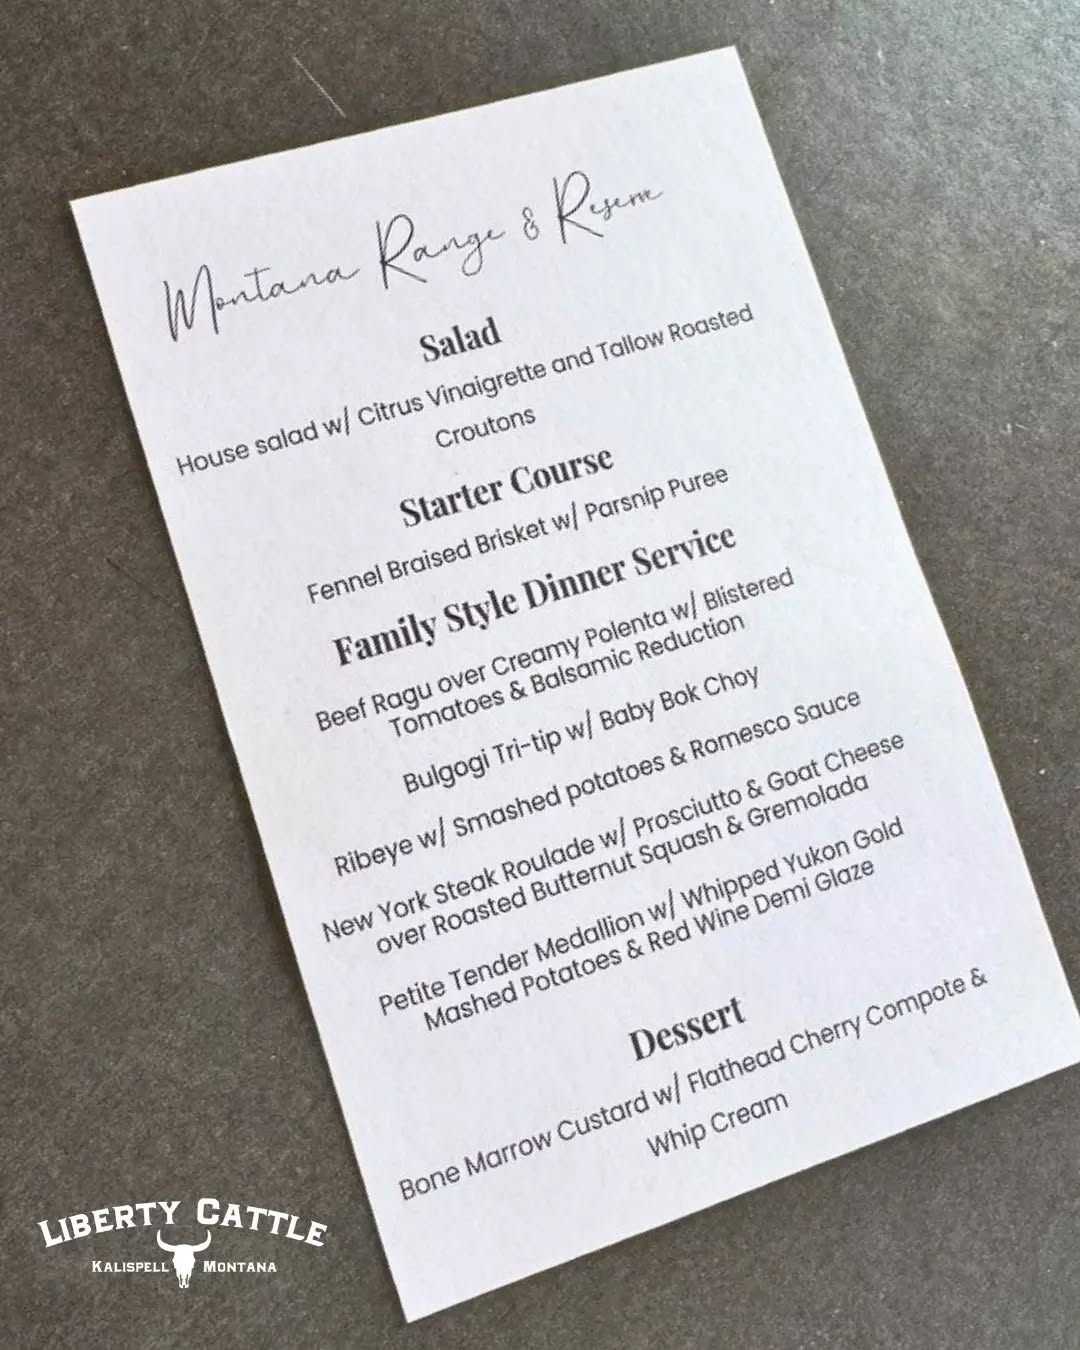 Montana Range & Reserve
Salad
House salad w/ Citrus Vinaigrette and Tallow Roasted
Croutons
Starter Course
Fennel Braised Brisket w/ Parsnip Puree
Family Style Dinner Service
Beef Ragu over Creamy Polenta w/ Blistered
Tomatoes & Balsamic Reduction
Bulgogi Tri-tip w/ Baby Bok Choy
Ribeye w/ Smashed potatoes & Romesco Sauce
New York Steak Roulade w/ Prosciutto & Goat Cheese
over Roasted Butternut Squash & Gremolada
Petite Tender Medallion w/ Whipped Yukon Gold
Mashed Potatoes & Red Wine Demi Glaze
Dessert
Bone Marrow Custard w/ Flathead Cherry Compote &
Whip Cream
LIBERTY CATTLE
KALISPELL MONTANA